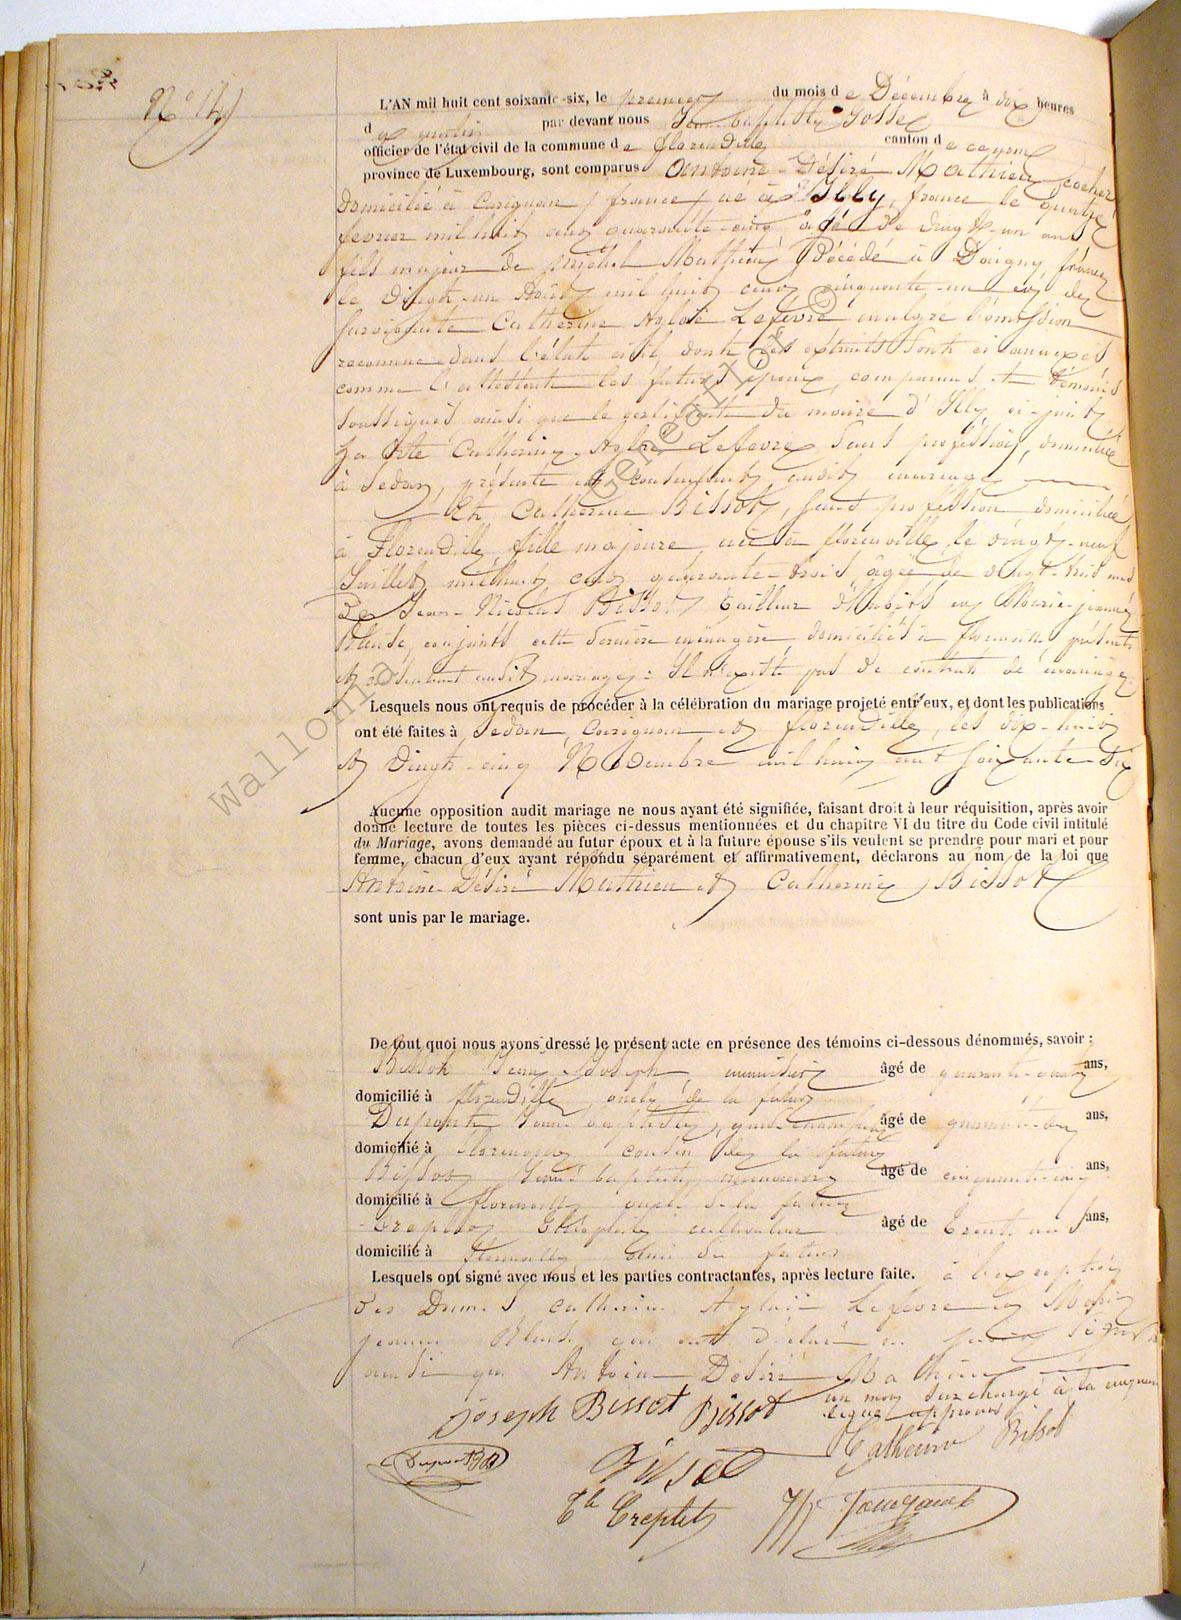 N° 14
L'AN mil huit cent soixante-six, le premier du mois de Décembre à dix heures
d u matin par devant nous Jean baptiste
officier de l'état civil de la commune de florenville canton de
province de Luxembourg, sont comparus Antoine-Désiré Mathieu, cocher
domicilié à Carignan, france, né à Illy, france le quatre
fevrier mil huit cent quarante-cinq âgé de vingt-un ans
fils majeur de michel Mathieu décédé à Daigny, france
le vingt-un Août mil huit cent cinquante-un et de
survivante Catherine Aglaé Lefèvre malgré l'omission
reconnue dans l'état civil dont les extraits sont ci annexés
comme l'attestent les futurs époux, comparus et témoins
soussignés ainsi que le certificat du maire d'Illy, ci-joint,
La dite Catherine Aglaé Lefevre sans profession, domiciliée
à Sedan, présente et consentant audit mariage
Et Catherine Bissot, sans profession domiciliée
à Florenville fille majeure née à florenville le vingt-neuf
Juillet mil huit cent quarante-trois âgée de vingt-trois ans
De Jean-Nicolas Bissot tailleur d'habits et Marie-jeanne
conjoints cette dernière ménagère domiciliés à florenville présents
et consentant audit mariage: Il n'existe pas de contrat de mariage.
Lesquels nous ont requis de procéder à la célébration du mariage projeté entr'eux, et dont les publications
ont été faites à Sedan, Carignan et florenville, les dix-huit
et vingt-cinq Novembre mil huit cent soixante-six
Aucune opposition audit mariage ne nous ayant été signifiée, faisant droit à leur réquisition, après avoir
donné lecture de toutes les pièces ci-dessus mentionnées et du chapitre VI du titre du Code civil intitulé
du Mariage, avons demandé au futur époux et à la future épouse s'ils veulent se prendre pour mari et pour
femme, chacun d'eux ayant répondu séparément et affirmativement, déclarons au nom de la loi que
Antoine-Désiré Mathieu et Catherine Bissot
sont unis par le mariage.
De tout quoi nous avons dressé le présent acte en présence des témoins ci-dessous dénommés, savoir:
Bissot Jean-Joseph, menuisier âgé de quarante-quatre ans,
domicilié à florenville oncle de la future
Dupont Jean baptiste, garde champêtre âgé de ans,
domicilié à florenville cousin de la future
Bissot Jean baptiste âgé de cinquante-cinq ans,
domicilié à florenville oncle de la future
Creplet Théophile cultivateur âgé de trente ans,
domicilié à florenville ami du futur
Lesquels ont signé avec nous et les parties contractantes, après lecture faite. à l'exception
des Dames Catherine Aglaée Lefevre et Marie
jeanne qui ont déclaré ne savoir signer
ainsi que Antoine Désiré Mathieu
un mot surchargé à la
ligne approuvé
Joseph Bissot Bissot
Catherine Bissot
Dupont JB
Bissot
Th Creplet
Wallonia Geneallor ©